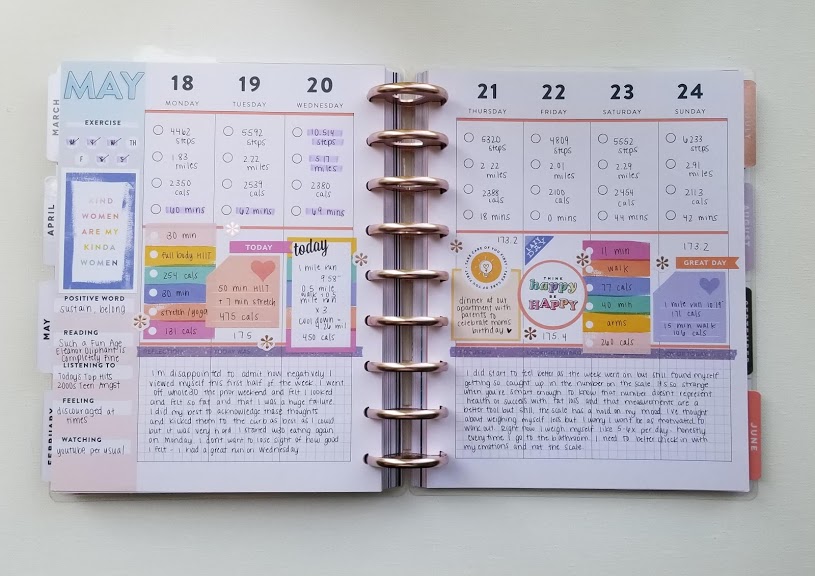 MARCH
APRIL
MAY
FEBRUARY
MAY
EXERCISE
M T W TH
F S S
KIND
WOMEN
ARE MY
KINDA
WOMEN
POSITIVE WORD
sustain, belong
READING
Such a Fun Age
Eleanor Oliphant is
Completely Fine
LISTENING TO
Today's Top Hits
2000s Teen Angst
FEELING
discouraged at
times
WATCHING
youtube per usual
18
MONDAY
4462
steps
1.83
miles
2350
cals
60 mins
30 min
full body HIIT
254 cals
30 min
stretch/yoga
131 cals
19
TUESDAY
5592
steps
2.22
miles
2539
cals
62 mins
TODAY
50 min HIIT
+ 7 min stretch
475 cals
175
20
WEDNESDAY
10,514
steps
5.17
miles
2380
cals
69 mins
today
1 mile run
9:58
0.5 mile
walk + 0.5
mile run
x 3
cool down =
4.26 mil
450 cals
I'm disappointed to admit how negatively I
viewed myself this first half of the week. I went
off whole30 the prior weekend and felt I looked
and felt so fat and that I was a huge failure.
I did my best to acknowledge those thoughts
and kicked them to the curb as best as I could
but it was very hard. I started w30 eating again
on Monday. I don't want to lose sight of how good
I felt - I had a great run on Wednesday
21
THURSDAY
5320
steps
2.22
miles
2388
cals
18 min
173.2
TAKE CARE OF YOU FIRST
dinner at our
apartment with
parents to
celebrate moms
birthday
22
FRIDAY
4809
steps
2.01
miles
2100
cals
0 mins
THINK
happy
BE
HAPPY
175.4
23
SATURDAY
5552
steps
2.29
miles
2454
cals
44 mins
11 min
walk
77 cals
40 min
arms
260 cals
24
SUNDAY
6233
steps
2.91
miles
2113
cals
42 min
173.2
GREAT DAY
1 mile run 10:19
171 cals
15 min walk
106 cals
I did start to feel better as the week went on but still found myself
getting so caught up in the number on the scale. It's so strange
when you're smart enough to know that number doesn't represent
health or success with fat loss and that measurements are a
better tool but still the scale has a hold on my mood. I've thought
about weighing myself less but I worry I won't be as motivated to
work out. Right now I weigh myself like 5-6x per day. Honestly
every time I go to the bathroom. I need to better check in with
my emotions and not the scale.
JULY
AUGUST
JUNE